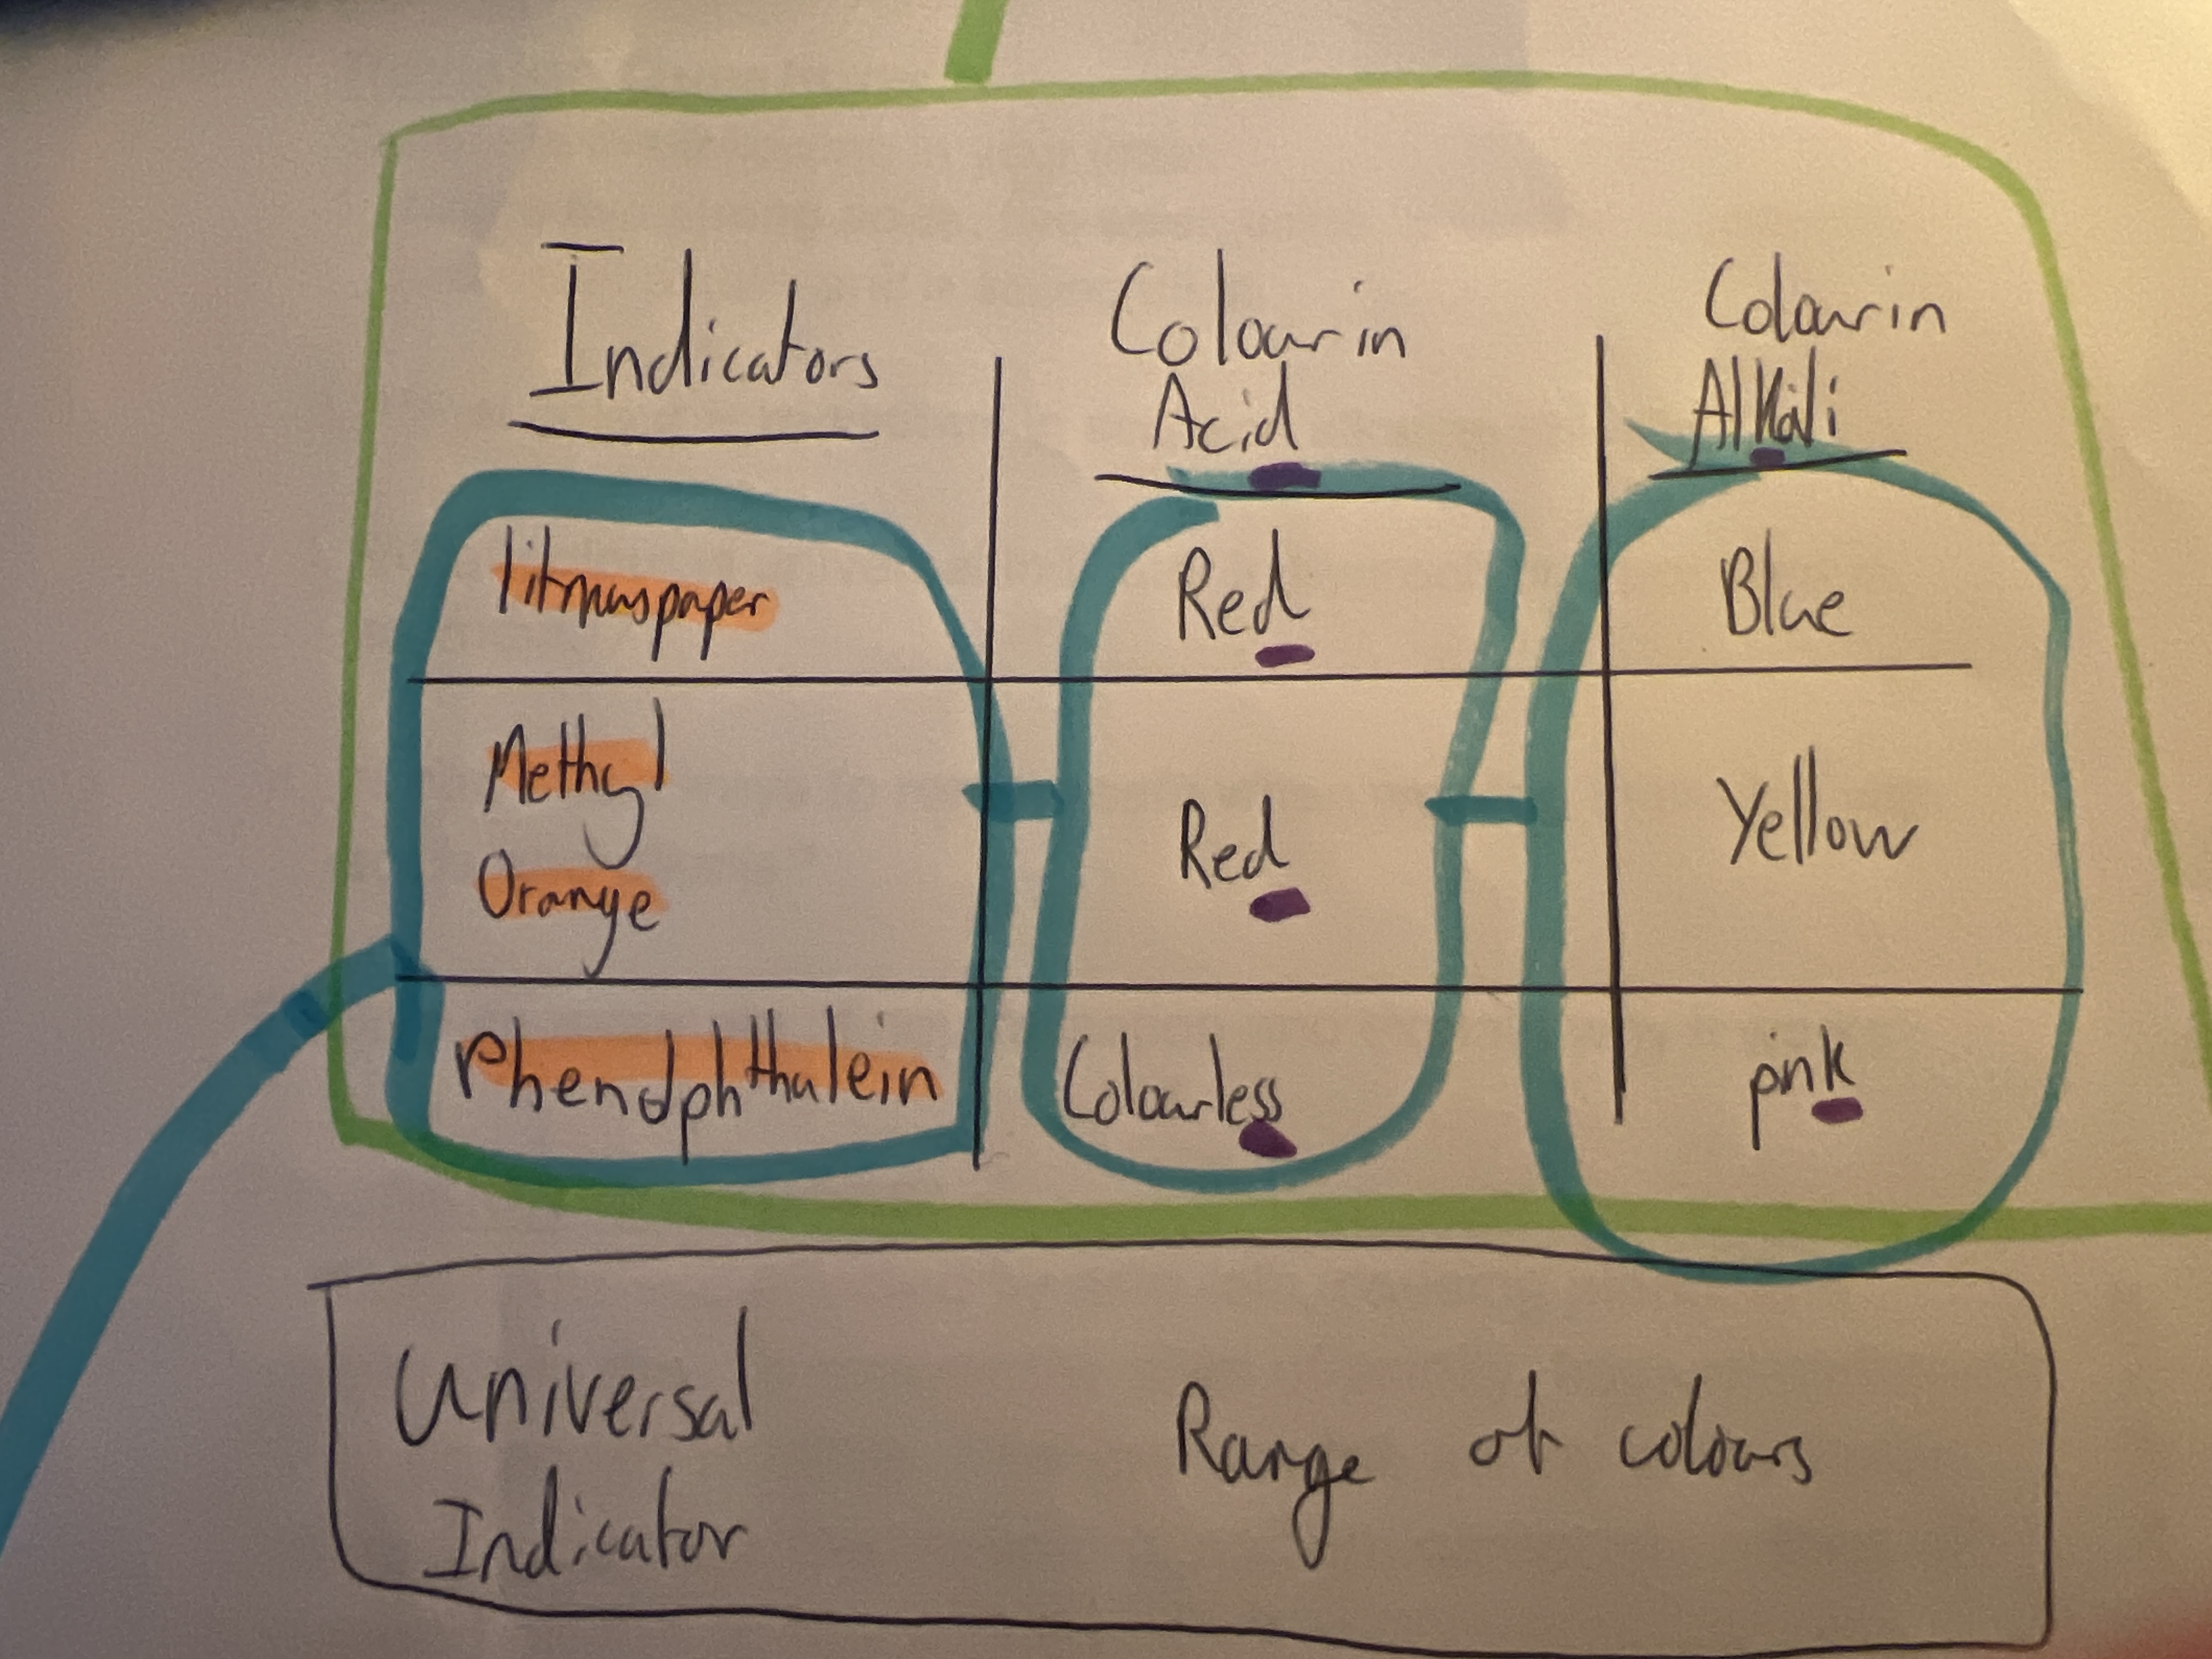 Indicators
Colour in
Acid
Colour in
Alkali
litmus paper
Red
Blue
Methyl
Orange
Red
Yellow
Phenolphthalein
Colourless
pink
Universal
Indicator
Range of colours